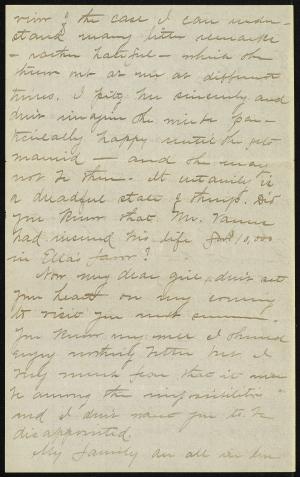 view of the case I can under-
stand many little remarks
- rather hateful - which she
threw out at me at different
times. I pity her sincerely and
don't imagine she will be par-
ticularly happy until she gets
married - and she may
not be then. It certainly is
a dreadful state of things. Did
you know that Mr. Vance
had insured his life for $10,000
in Ella's favor?
Now my dear girl, don't set
your heart on my coming
to visit you next summer.
You know my self I should
enjoy nothing better but I
very much fear that it will
be among the impossibilities
and I don't want you to be
disappointed.
My family are all well